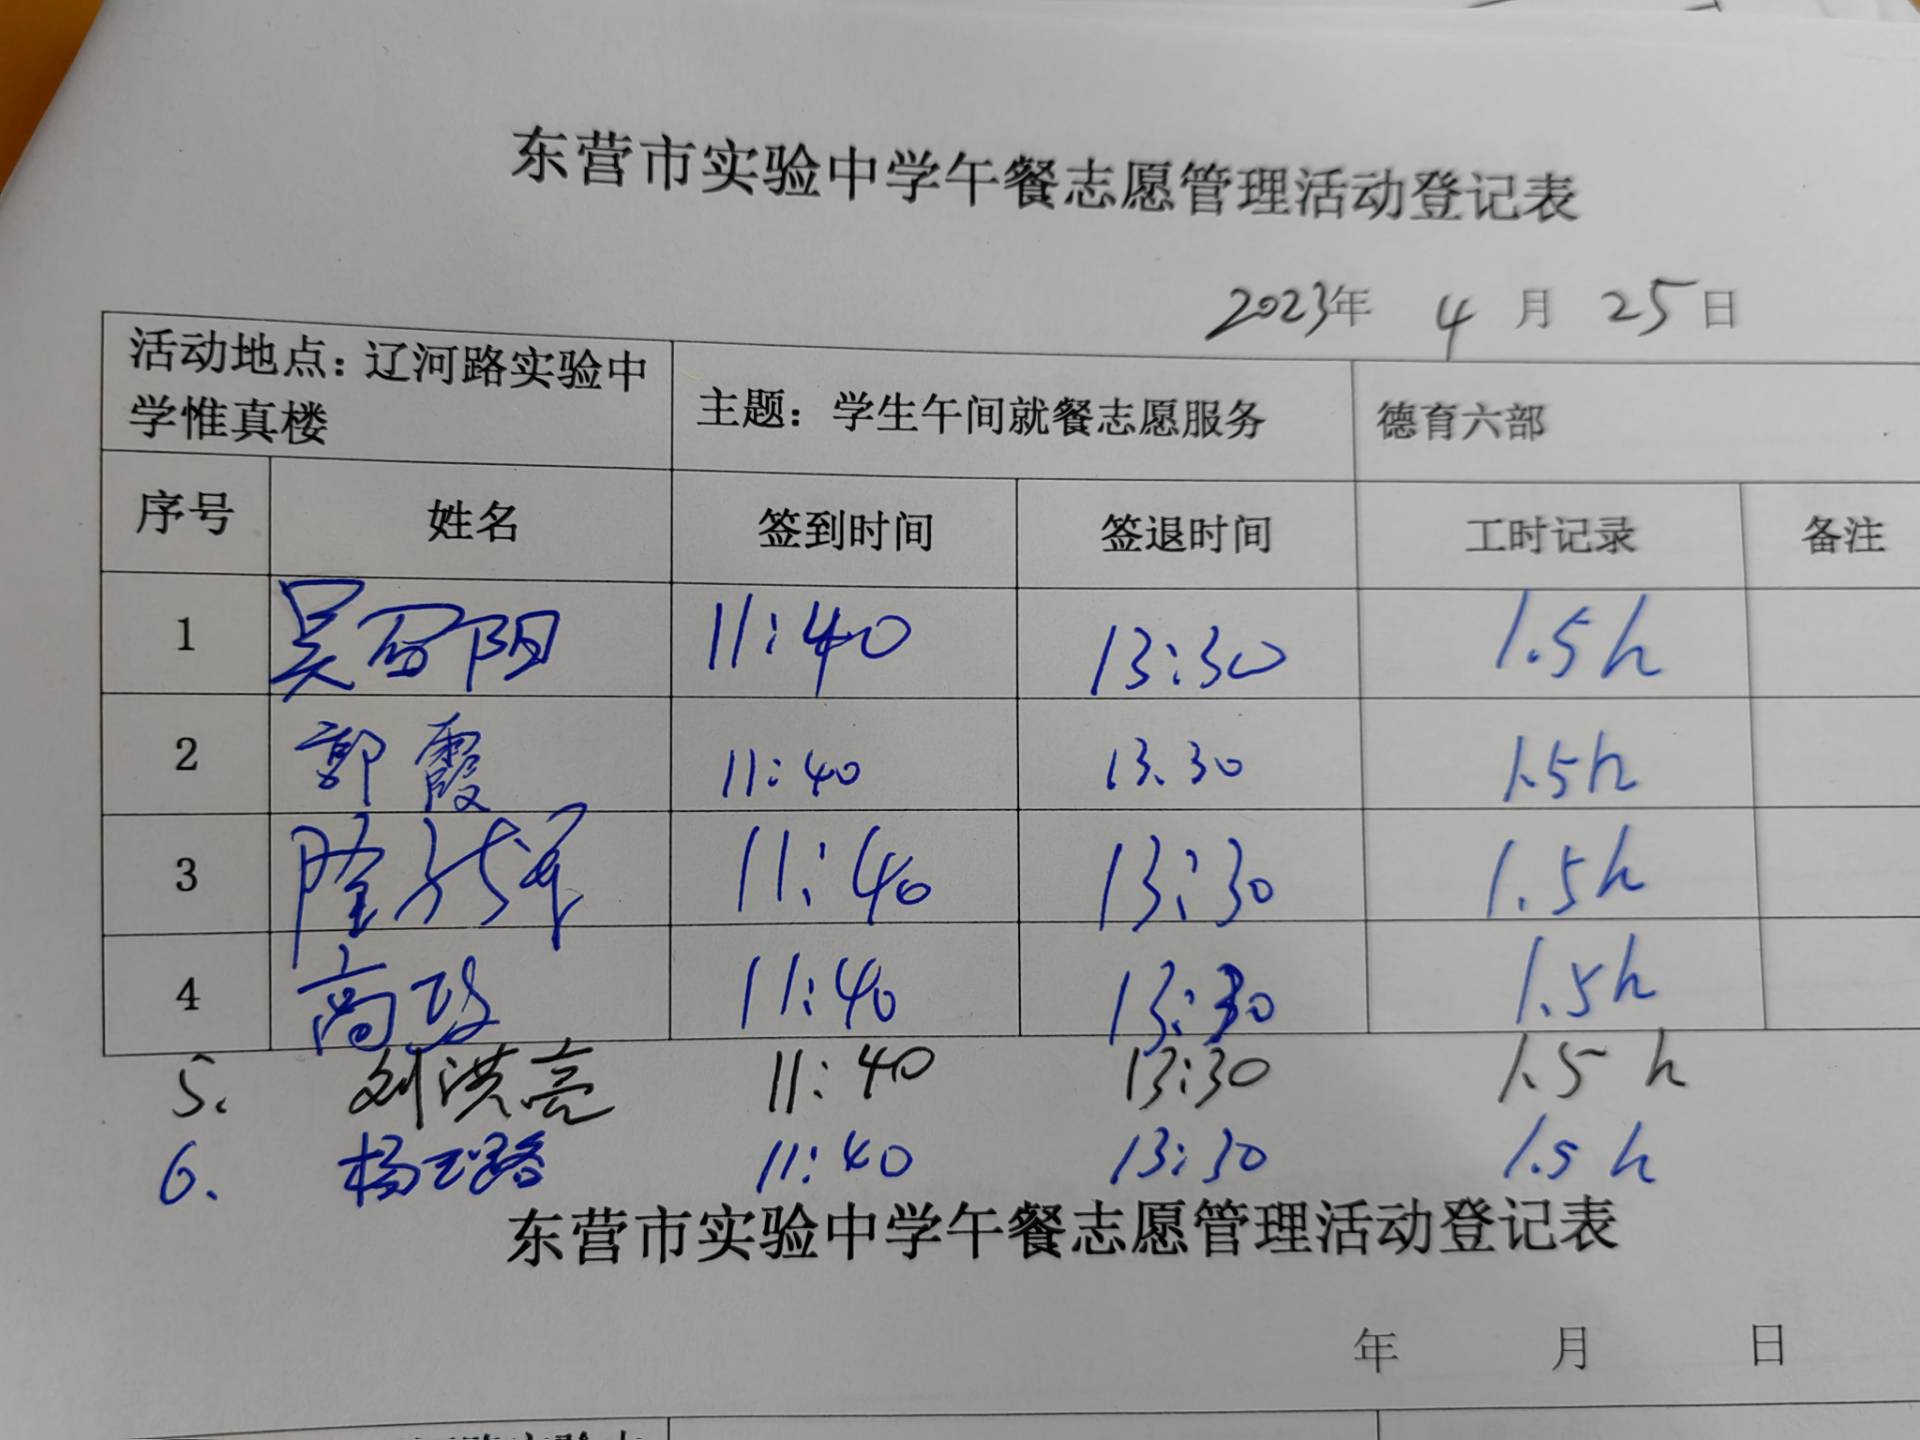 东营市实验中学午餐志愿管理活动登记表
2023年 4 月 25 日
活动地点：辽河路实验中学惟真楼 主题：学生午间就餐志愿服务 德育六部
序号 姓名 签到时间 签退时间 工时记录 备注
1 吴召阳 11:40 13:30 1.5h
2 郭霞 11:40 13.30 1.5h
3 11:40 13:30 1.5h
4 高政 11:40 13:30 1.5h
5. 刘洪亮 11:40 13:30 1.5h
6. 杨玉路 11:40 13:30 1.5h
东营市实验中学午餐志愿管理活动登记表
年 月 日